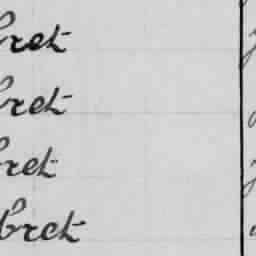 bret
bret
bret
bret